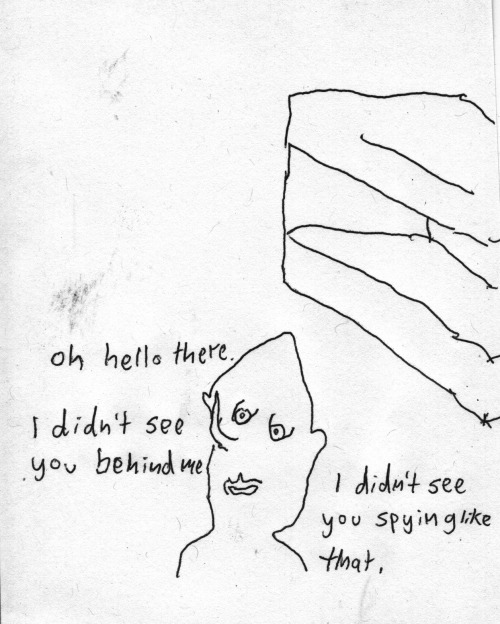 oh hello there.
I didn't see
you behind me
I didn't see
you spying like
that.